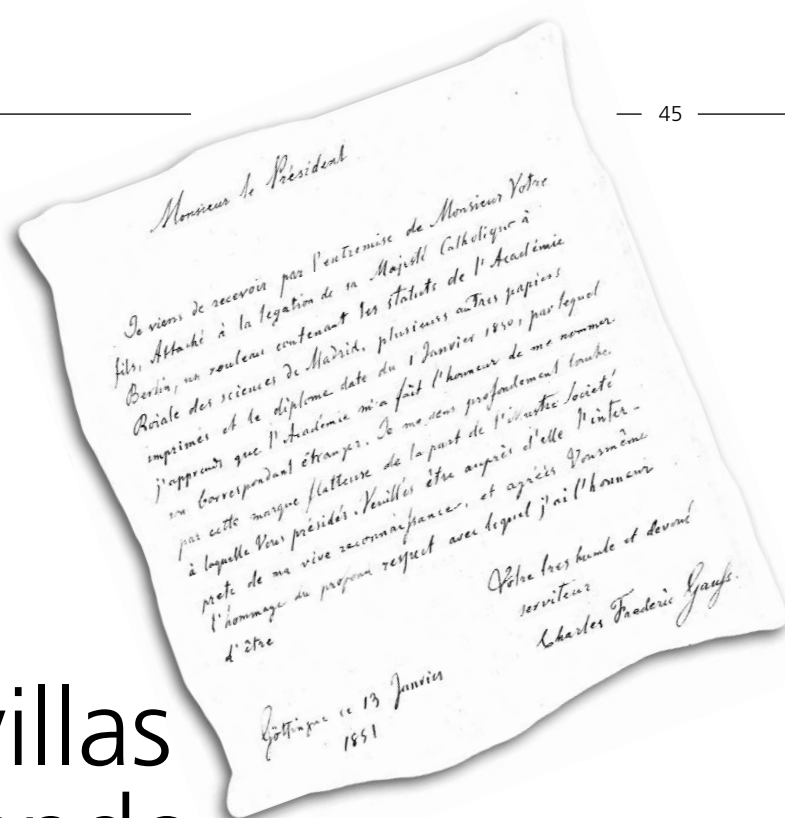 45
Monsieur le Président
Je viens de recevoir par l'entremise de Monsieur Votre
fils, Attaché à la legation de sa Majesté Catholique à
Berlin, un rouleau contenant les statuts de l'Académie
Roiale des sciences de Madrid, plusieurs autres papiers
imprimés et le diplome date du 1 Janvier 1850, par lequel
j'apprends que l'Académie m'a fait l'honneur de me nommer
son Correspondant étranger. Je me sens profondement touché
par cette marque flatteuse de la part de l'illustre Societé
à laquelle Vous présidés. Veuillés être auprès d'elle l'inter-
prete de ma vive reconnaissance, et agréés Vousmême
l'hommage du profond respect avec lequel j'ai l'honneur
d'être
Votre tres humble et devoué
serviteur
Charles Frederic Gauss.
Göttingue ce 13 Janvier
1851
villas